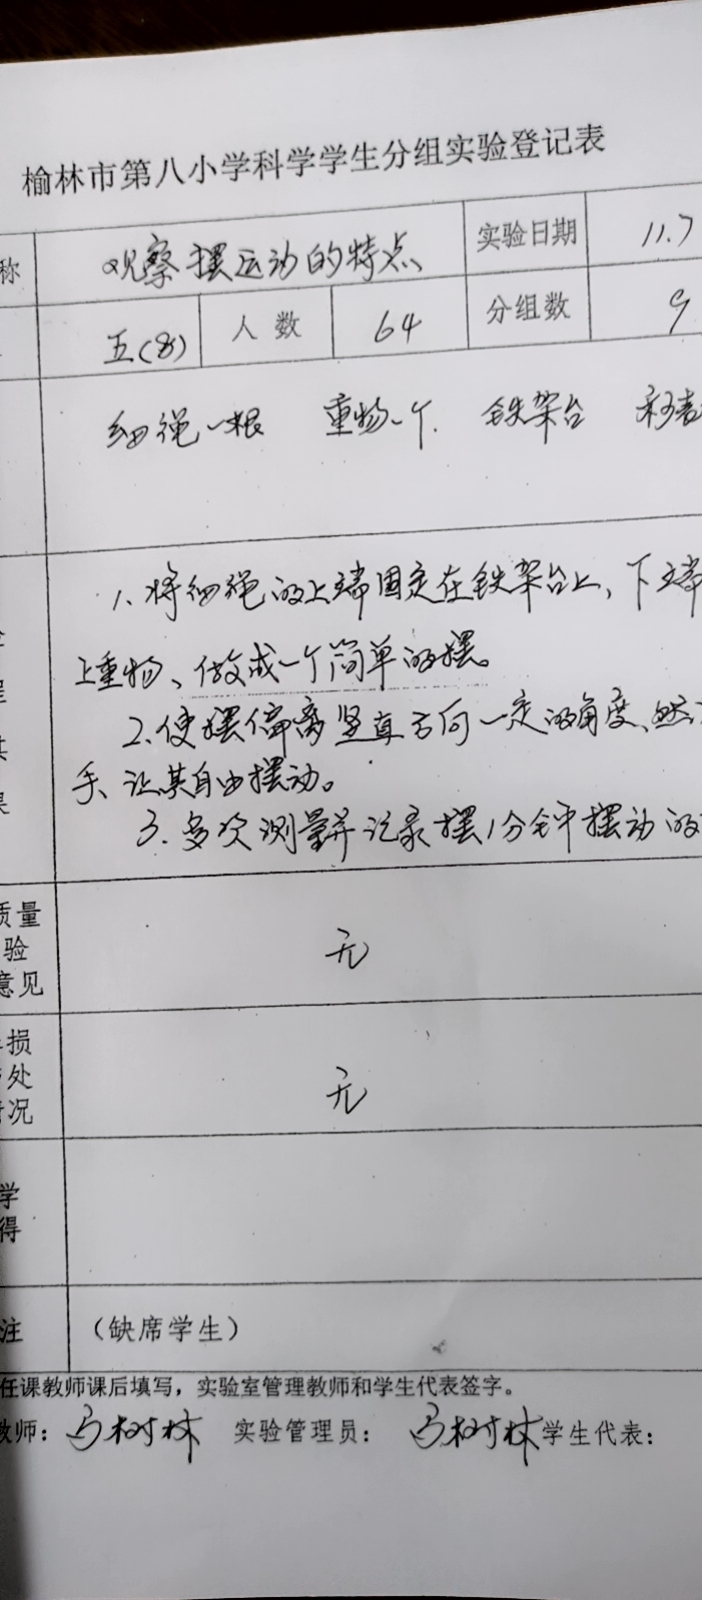 榆林市第八小学科学学生分组实验登记表
称 观察摆运动的特点 实验日期 11.7
五(8) 人数 64 分组数 9
细绳一根 重物一个 铁架台 秒表
1、将细绳的上端固定在铁架台上，下端
上重物、做成一个简单的摆。
2、使摆偏离竖直方向一定的角度、然
手、让其自由摆动。
3、多次测量并记录摆1分钟摆动的
质量
验 无
意见
损
处 无
情况
学
得
注 （缺席学生）
任课教师课后填写，实验室管理教师和学生代表签字。
教师： 马树林 实验管理员： 马树林 学生代表：